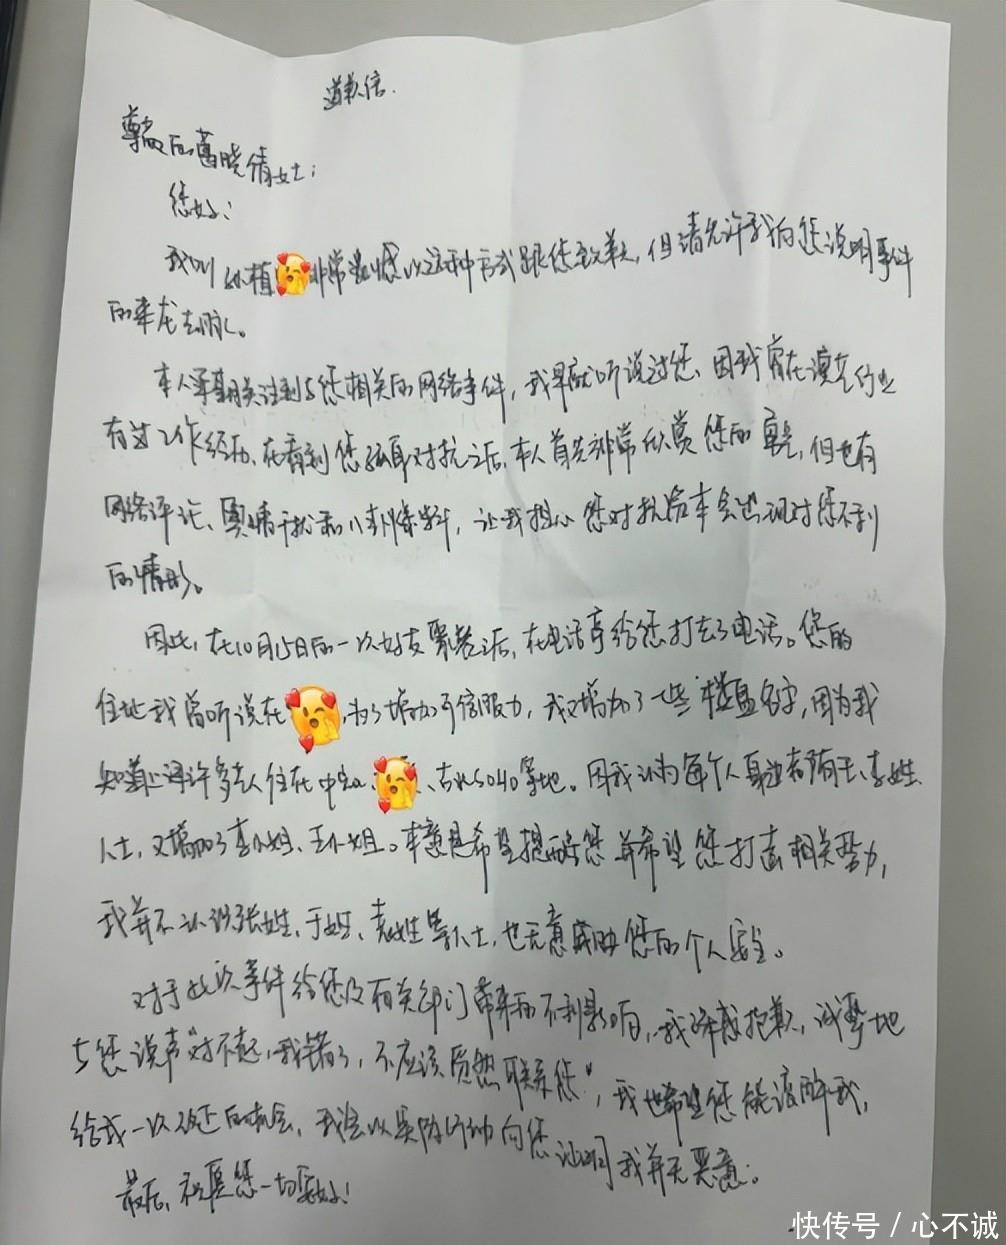 道歉信.
尊敬的葛晓倩女士:
您好:
我叫 植 非常遗憾以这种方式跟您致歉,但请允许我向您说明事件
的来龙去脉。
本人 关注到与您相关的网络事件,我早就听说过您、因我曾在演艺行业
有过工作经历、在看到您 对抗之后,本人首先非常欣赏您的勇气,但也有
网络评论、舆情干扰和八卦爆料,让我担心您对抗 会出现对您不利
的情形。
因此,在10月15日的一次好友聚餐之后,在电话亭给您打去了电话。您的
住地我曾听说在 ,为了增加可信服力,我又增加了一些楼盘名字,因为我
知道上海许多名人住在中 、 、古北SOHO等地。因我认为每个人身边都有王、李姓
人士,又增加了李小姐、王小姐。本意是希望提醒您并希望您打击相关势力,
我并不认识张姓、于姓、袁姓等人士,也无意威胁您的个人安全。
对于此次事件给您及有关部门带来的不利影响,我深感抱歉,诚挚地
与您说声"对不起,我错了,不应该贸然联系您",我也希望您能谅解我,
给我一次改正的机会,我会以实际行动向您证明我并无恶意。
最后,祝愿您一切安好!
快传号 / 心不诚